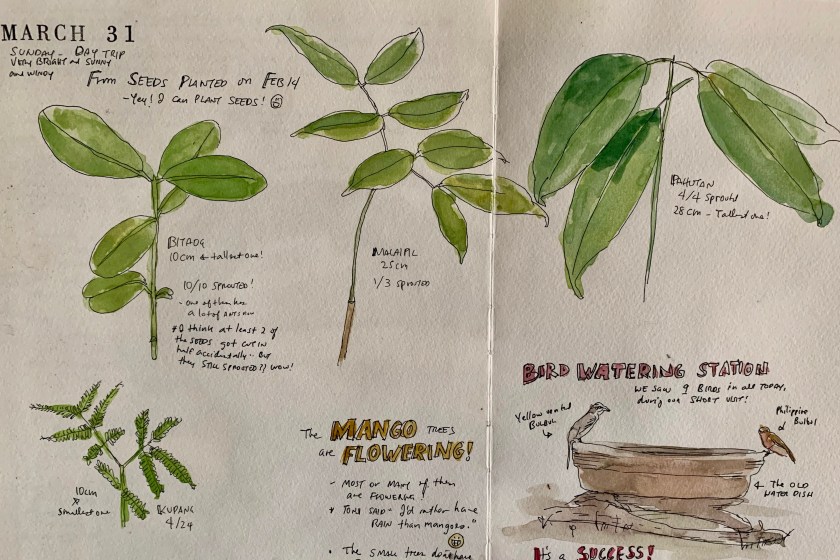 MARCH 31
SUNDAY - DAY TRIP
VERY BRIGHT and SUNNY
and WINDY
From SEEDS PLANTED on FEB 14
- Yey! I can PLANT SEEDS!
BITAOG
10cm tallest one!
10/10 SPROUTED!
- one of them has
a lot of ants now
* I think at least 2 of
the SEEDS got cut in
half accidentally - But
they STILL SPROUTED?! WOW!
MALAIPIL
25cm
1/3 sprouted
PAHUTAN
4/4 Sprouts
28 cm - Tallest one!
10cm
smallest one
KUPANG
4/24
The MANGO TREES
are FLOWERING!
- MOST or MANY of them
are FLOWERING!
* TONI SAID - I'd rather have
RAIN than mangoes."
• The SMALL trees don't have
BIRD WATERING STATION
WE SAW 9 BIRDS in all TODAY,
during our SHORT VISIT!
Yellow vented
BULBUL
Philippine
Bulbul
THE OLD
WATER DISH
It's a SUCCESS!